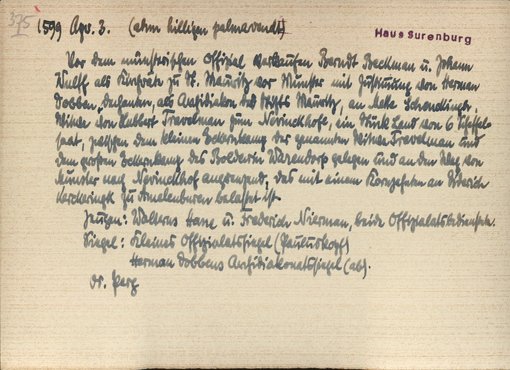 375
1599 Apr. 3. (ahm hilligen palmavendt) Haus Surenburg
Vor dem münsterischen Offizial verkaufen Berndt Beckman u. Johann
Wulff als Kirchräte zu St. Mauritz vor Münster mit Zustimmung von Herman
Dobben, Dechanten, als Archidiakon des Stifts Mauritz, an Meke Schendlinger,
Witwe von Hubbert Travelman zum Nevinckhofe, ein Stück Land von 6 Scheffel-
saat, zwischen dem kleinen Eckernkamp der genannten Witwe Travelman und
dem großen Eckernkamp des Boldewin Warendorp gelegen und an den Weg von
Münster nach Nevinckhof angrenzend, das mit einem Kornzehnten an Diderich
Kerckerinck zu Amelenburen belastet ist.
Zeugen: Walterus Hane u. Frederich Nierman, beide Offizialatsbediensete.
Siegel: Kleines Offizialatssiegel (Pauluskopf)
Herman Dobbens Archidiakonatssiegel (ab).
Or. Perg.